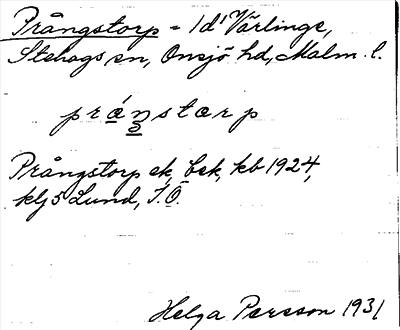 Prångstorp = 1 d' Värlinge,
Stehags sn, Onsjö hd, Malm. l.
prá̲ŋ̲storp
Prångstorp ek, bek, kb 1924,
klj 5 Lund, T.Ö.
Helga Persson 1931